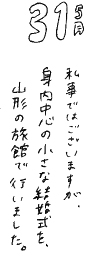 31 5月
私事ではございますが、
身内中心の小さな結婚式を、
山形の旅館で行いました。